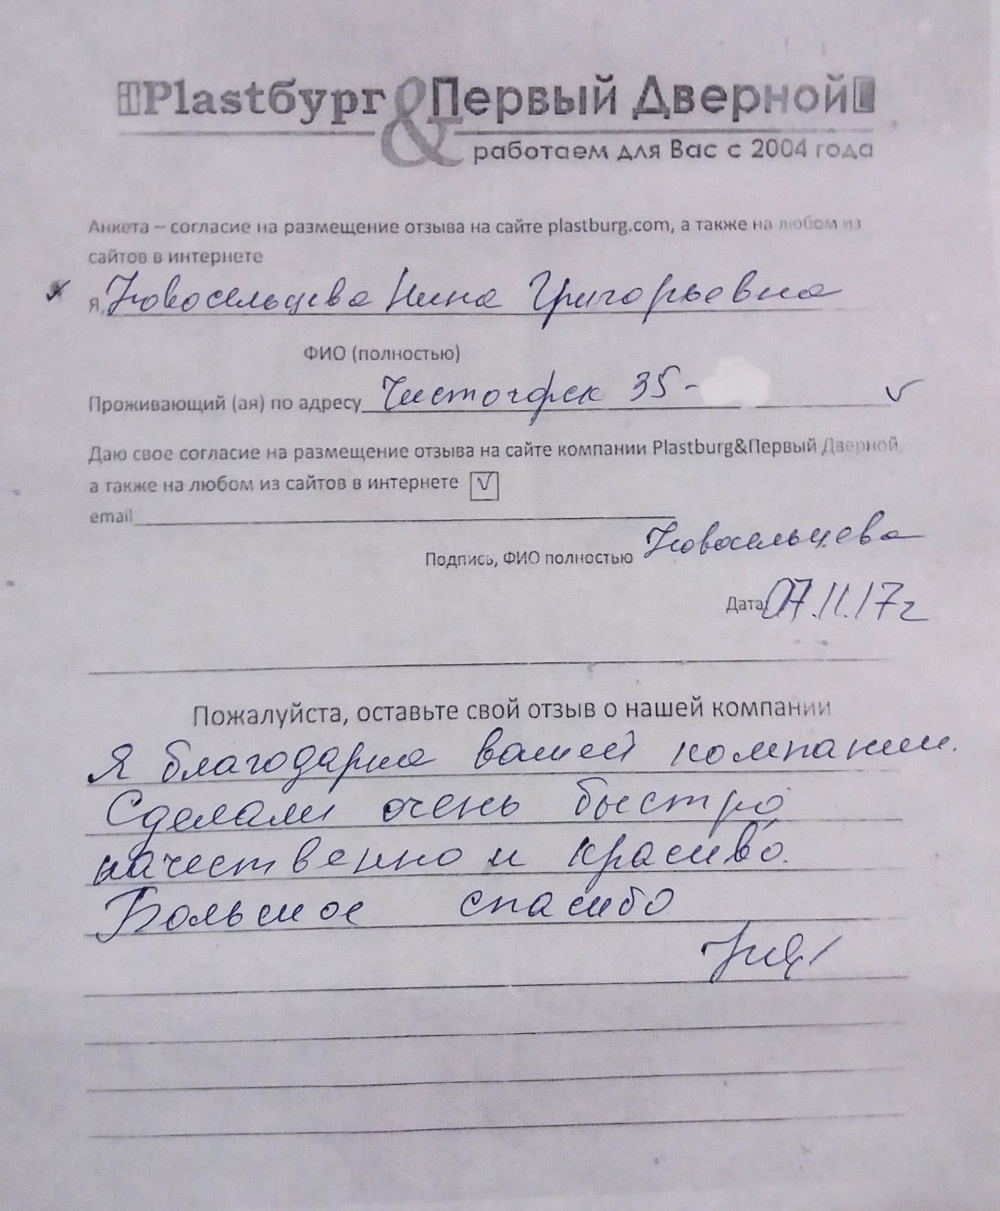 Plastбург & Первый Дверной
работаем для Вас с 2004 года
Анкета – согласие на размещение отзыва на сайте plastburg.com, а также на любом из
сайтов в интернете
я, Новосельцева Нина Григорьевна
ФИО (полностью)
Проживающий (ая) по адресу Чистогорск 35-
Даю свое согласие на размещение отзыва на сайте компании Plastburg&Первый Дверной,
а также на любом из сайтов в интернете
email
Подпись, ФИО полностью Новосельцева
Дата 07.11.17г
Пожалуйста, оставьте свой отзыв о нашей компании
Я благодарна вашей компании.
Сделали очень быстро,
качественно и красиво.
Большое спасибо